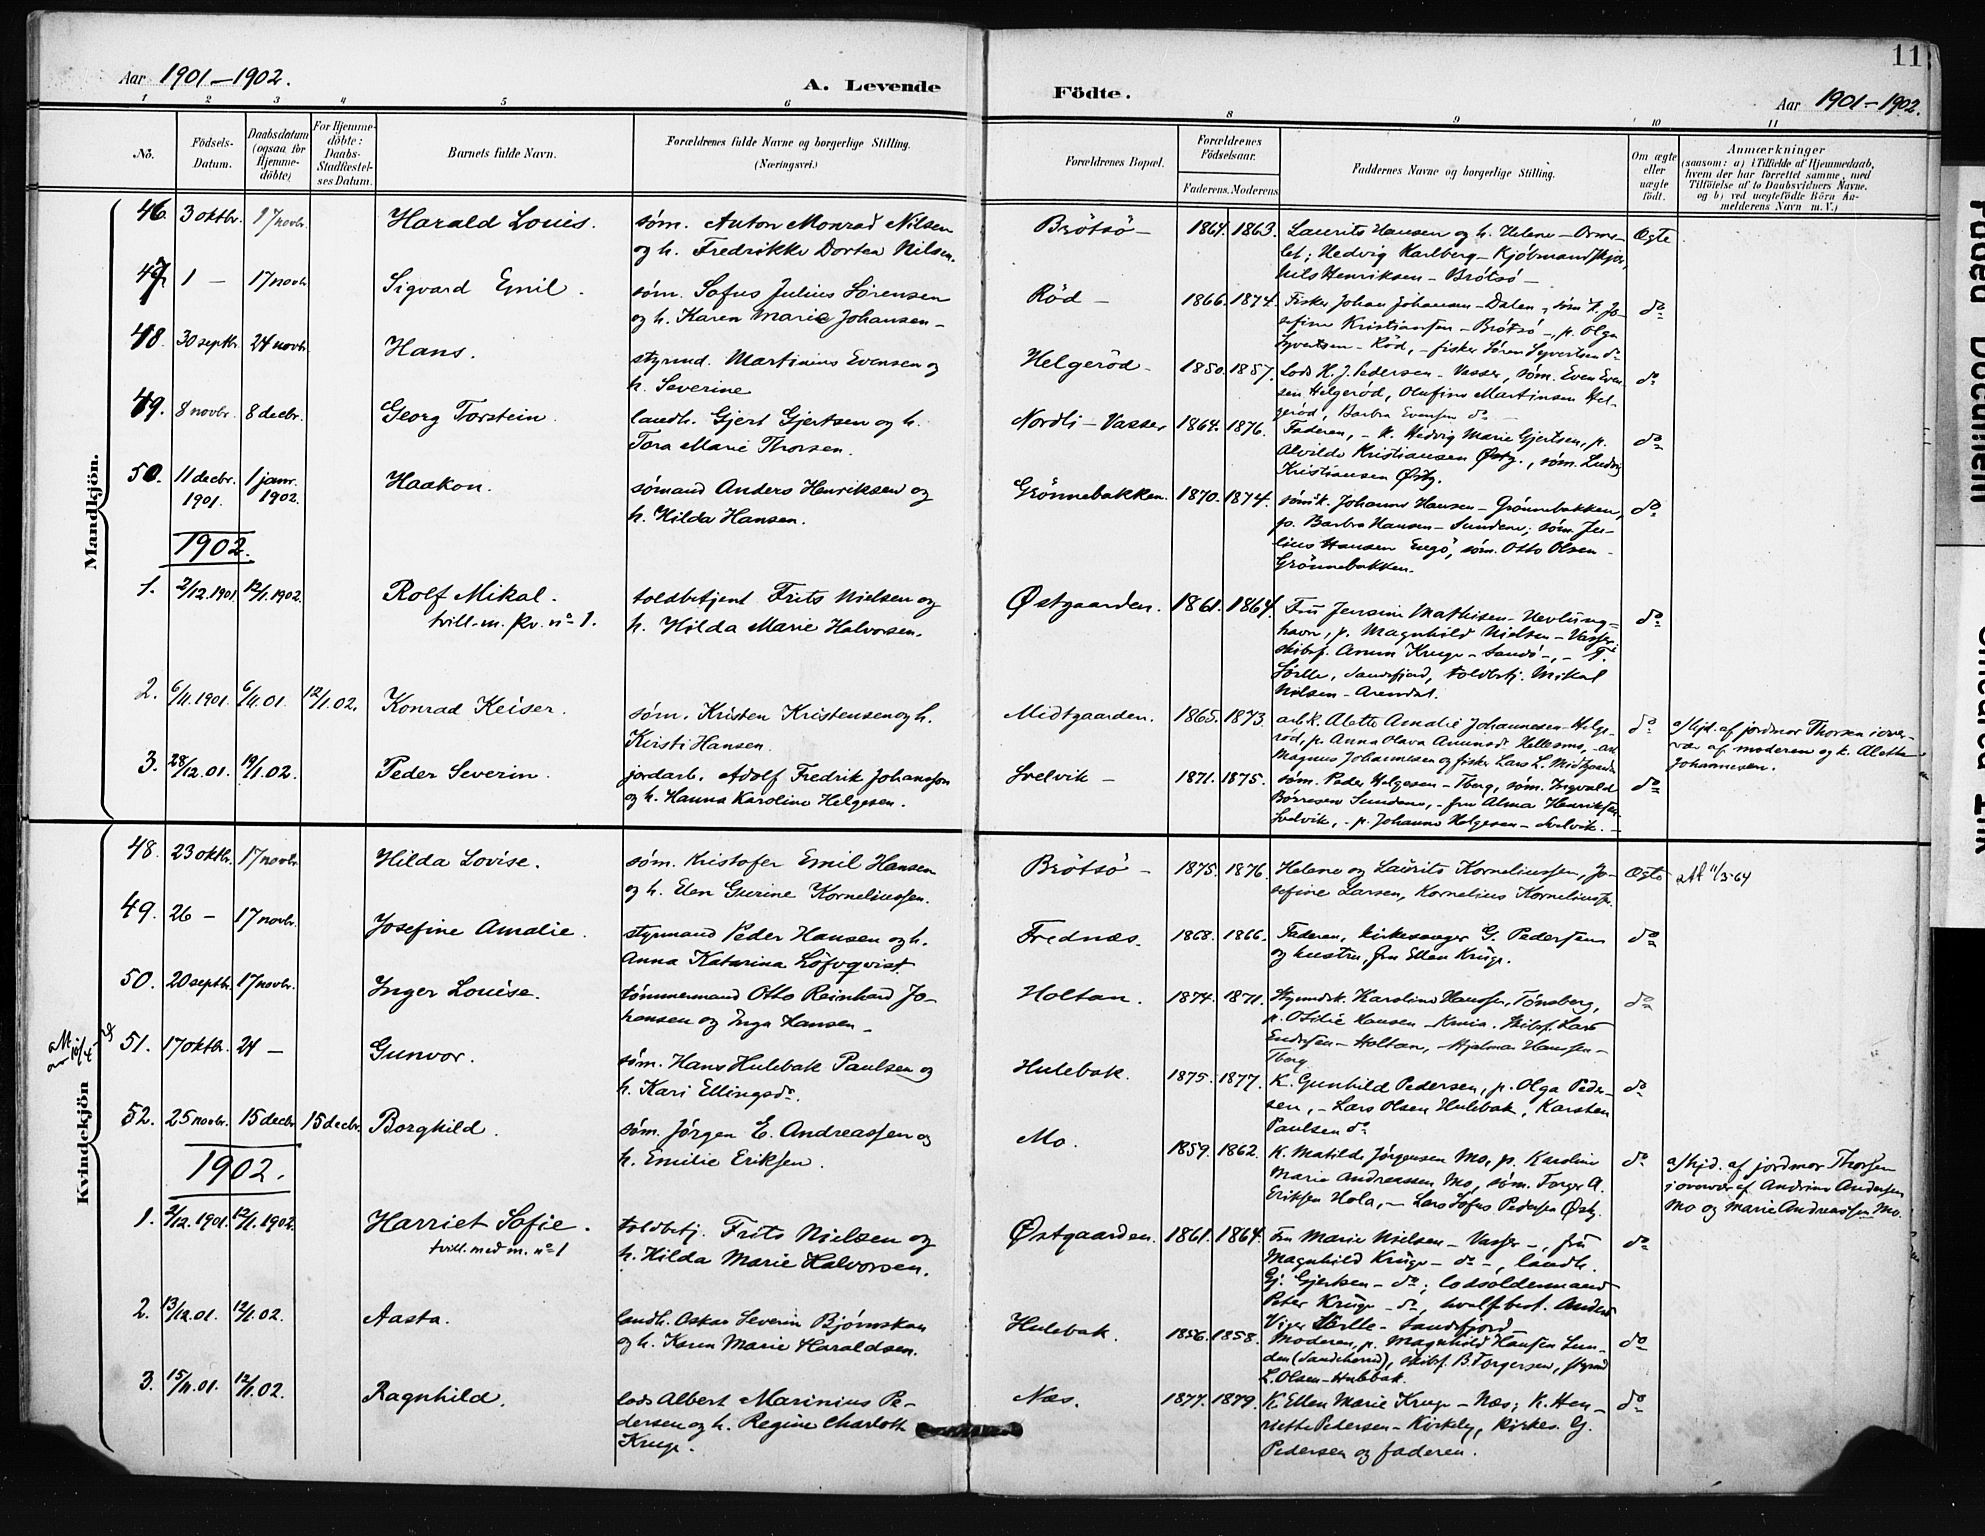 Aar 1901–1902.
A. Levende
Födte.
11
Aar 1901–1902.
1 2 3 4 5 6 8 9 10 11
No.
Födsels-Datum.
Daabsdatum (ogsaa for Hjemme-döbte)
For Hjemme-döbte: Daabs-Stadfæstel-ses Datum.
Barnets fulde Navn.
Forældrenes fulde Navne og borgerlige Stilling. (Næringsvei.)
Forældrenes Bopæl.
Forældrenes Födselsaar.
Faderens. Moderens.
Faddernes Navne og borgerlige Stilling.
Om ægte eller uægte födt.
Anmærkninger
(saasom: a) i Tilfælde af Hjemmedaab,
hvem der har forrettet samme, med
Tilföielse af to Daabsvidners Navne.
og b) ved uægtefödte Börn An-
melderens Navn m. V.)
Mandkjön.
46. 3 oktbr. 17 novbr. Harald Louis. søm. Anton Monrad Nilsen
og h. Fredrikke Dortea Nilsen.
Brötsö – 1864. 1863. Laurits Hansen og h. Helene – Orms-
let; Hedvig Karlberg – Kjöbmandskjær,
Nils Henriksen – Brötsö –
Ægte
47. 1 – 17 novbr. Sigvard Emil. søm. Sofus Julius Sörensen
og h. Karen Marie Johansen –
Röd – 1866. 1874. Fisker Johan Johansen – Dalen, søm.k. Jo-
sefine Kristiansen – Brötsö –, p. Olga
Syvertsen – Röd, – fisker Sören Syvertsen do
do
48. 30 septbr. 24 novbr. Hans. styrmd. Martinius Evensen og
h. Severine
Helgeröd – 1850. 1857. Lods H. J. Pedersen – Vasser, søm. Even Even-
sen Helgeröd, Olufine Martinsen Hel-
geröd, Barbra Evensen do –
do
49. 8 novbr. 8 decbr. Georg Torstein. landh. Gjert Gjertsen og h.
Tora Marie Thorsen.
Nordli – Vasser 1864. 1876. Faderen, – k. Hedvig Marie Gjertsen, p.
Alvilde Kristiansen Østg., søm. Ludvig
Kristiansen Østg.
do
50. 11 decbr. 1901. 1 janr. 1902. Haakon. sømand Anders Henriksen og
h. Hilda Hansen.
Grönnebakken. 1870. 1874. søm.k. Johanne Hansen – Grönnebakken,
p. Barbra Hansen – Sundene; søm. Ju-
lius Hansen Engö, søm. Otto Olsen –
Grönnebakken.
do
1902.
1. 2/12.1901. 12/1.1902. Rolf Mikal.
tvill. m. kv. no 1.
toldbetjent Frits Nielsen og
h. Hilda Marie Halvorsen.
Østgaarden. 1861. 1864. Fru Jensine Mathisen – Nevlung-
havn, p. Magnhild Nielsen – Vasser,
skibsf. Anun Kruge – Sandö –, – T.
Sörlle, Sandefjord, toldbetj. Mikal
Nilsen – Arendal.
do
2. 6/11.1901. 6/11.01. 12/1.02. Konrad Keiser. søm. Kristen Kristensen og h.
Kirsti Hansen.
Midtgaarden. 1865. 1873. arb.k. Alette Amalie Johannesen – Helge-
röd, p. Anna Olava Amundsd. Hellesmo, – arb.
Magnus Johannesen og fisker Lars L. Midtgaarden
do
a/ hjd. af jordmor Thorsen i over-
vær af moderen og k. Alette
Johannesen.
3. 28/12.01. 19/1.02. Peder Severin. jordarb. Adolf Fredrik Johansson
og h. Hanna Karoline Helgesen.
Svelvik – 1871. 1875. søm. Peder Helgesen – Tberg, søm. Ingvald
Börresen Sundene, – fru Alma Henriksen
Svelvik, – p. Johanne Helgesen – Svelvik. –
do
Kvindekjön
48. 23 oktbr. 17 novbr. Hilda Lovise. søm. Kristofer Emil Hansen
og h. Elen Gurine Korneliussen.
Brötsö – 1875. 1876. Helene og Laurits Korneliussen, Jo-
sefine Larsen, Kornelius Korneliuss.
Ægte att 11/3-64
49. 26 – 17 novbr. Josefine Amalie. styrmand Peder Hansen og h.
Anna Katarina Löfvqvist
Frednæs. 1868. 1866. Faderen, kirkesanger G. Pedersen
og hustru, fru Ellen Kruge.
do
50. 20 septbr. 17 novbr. Inger Louise. tömmermand Otto Reinhard Jo-
hansen og Inga Hansen –
Holtan. 1874. 1871. Styrmdsk. Karoline Hanssen, Tönsberg,
p. Otilie Hansen – Knia. Skibsf. Lars
Endresen – Holtan, – Hjalmar Hanssen –
Tberg
do
51. 17 oktbr. 24 – Gunvor. søm. Hans Hulebak Paulsen og
h. Kari Ellingsdr.
Hulebak. 1875. 1877. K. Gunhild Pedersen, p. Olga Peder-
sen, – Lars Olsen Hulebak, Karsten
Paulsen do
do
52. 25 novbr. 15 decbr. 15 decbr. Borghild. søm. Jörgen E. Andreassen og
h. Emilie Eriksen.
Mo. 1859. 1862. K. Matilde Jörgensen Mo, p. Karoline
Marie Andreassen Mo, søm. Torger A.
Eriksen Hola, – Lars Sofus Pedersen Østg.
do
a/ hjd. af jordmor Thorsen
i overvær af Andrine Andersen
Mo og Marie Andreassen Mo.
1902.
1. 2/12.1901. 12/1.1902. Harriet Sofie.
tvill. med m. no 1
toldbetj. Frits Nielsen og
h. Hilda Marie Halvorsen.
Østgaarden. 1861. 1864. Fru Marie Nielsen – Vasser –, fru
Magnhild Kruge – do –, landh.
Gj. Gjertsen – do; lodsoldermand
Peter Kruge – do, hvalfbest. Anders
Viger Sörlle – Sandefjord
do
2. 13/12.01. 12/1.02. Aasta. landh. Oskar Severin Björnskau
og h. Karen Marie Haraldsen.
Hulebak. 1856. 1858. Moderen, p. Magnhild Hansen Sun-
den (Sandeherred), skibsf. B. Torgersen, styrmd
L. Olsen – Hulebak.
do
3. 15/11.01. 12/1.02. Ragnhild. lods Albert Marinius Pe-
dersen og h. Regine Charlotte
Kruge.
Næs. 1877. 1879. K. Ellen Marie Kruge – Næs; k. Hen-
riette Pedersen – Kirkeby, kirkes. G.
Pedersen og faderen.
do
Faded Document